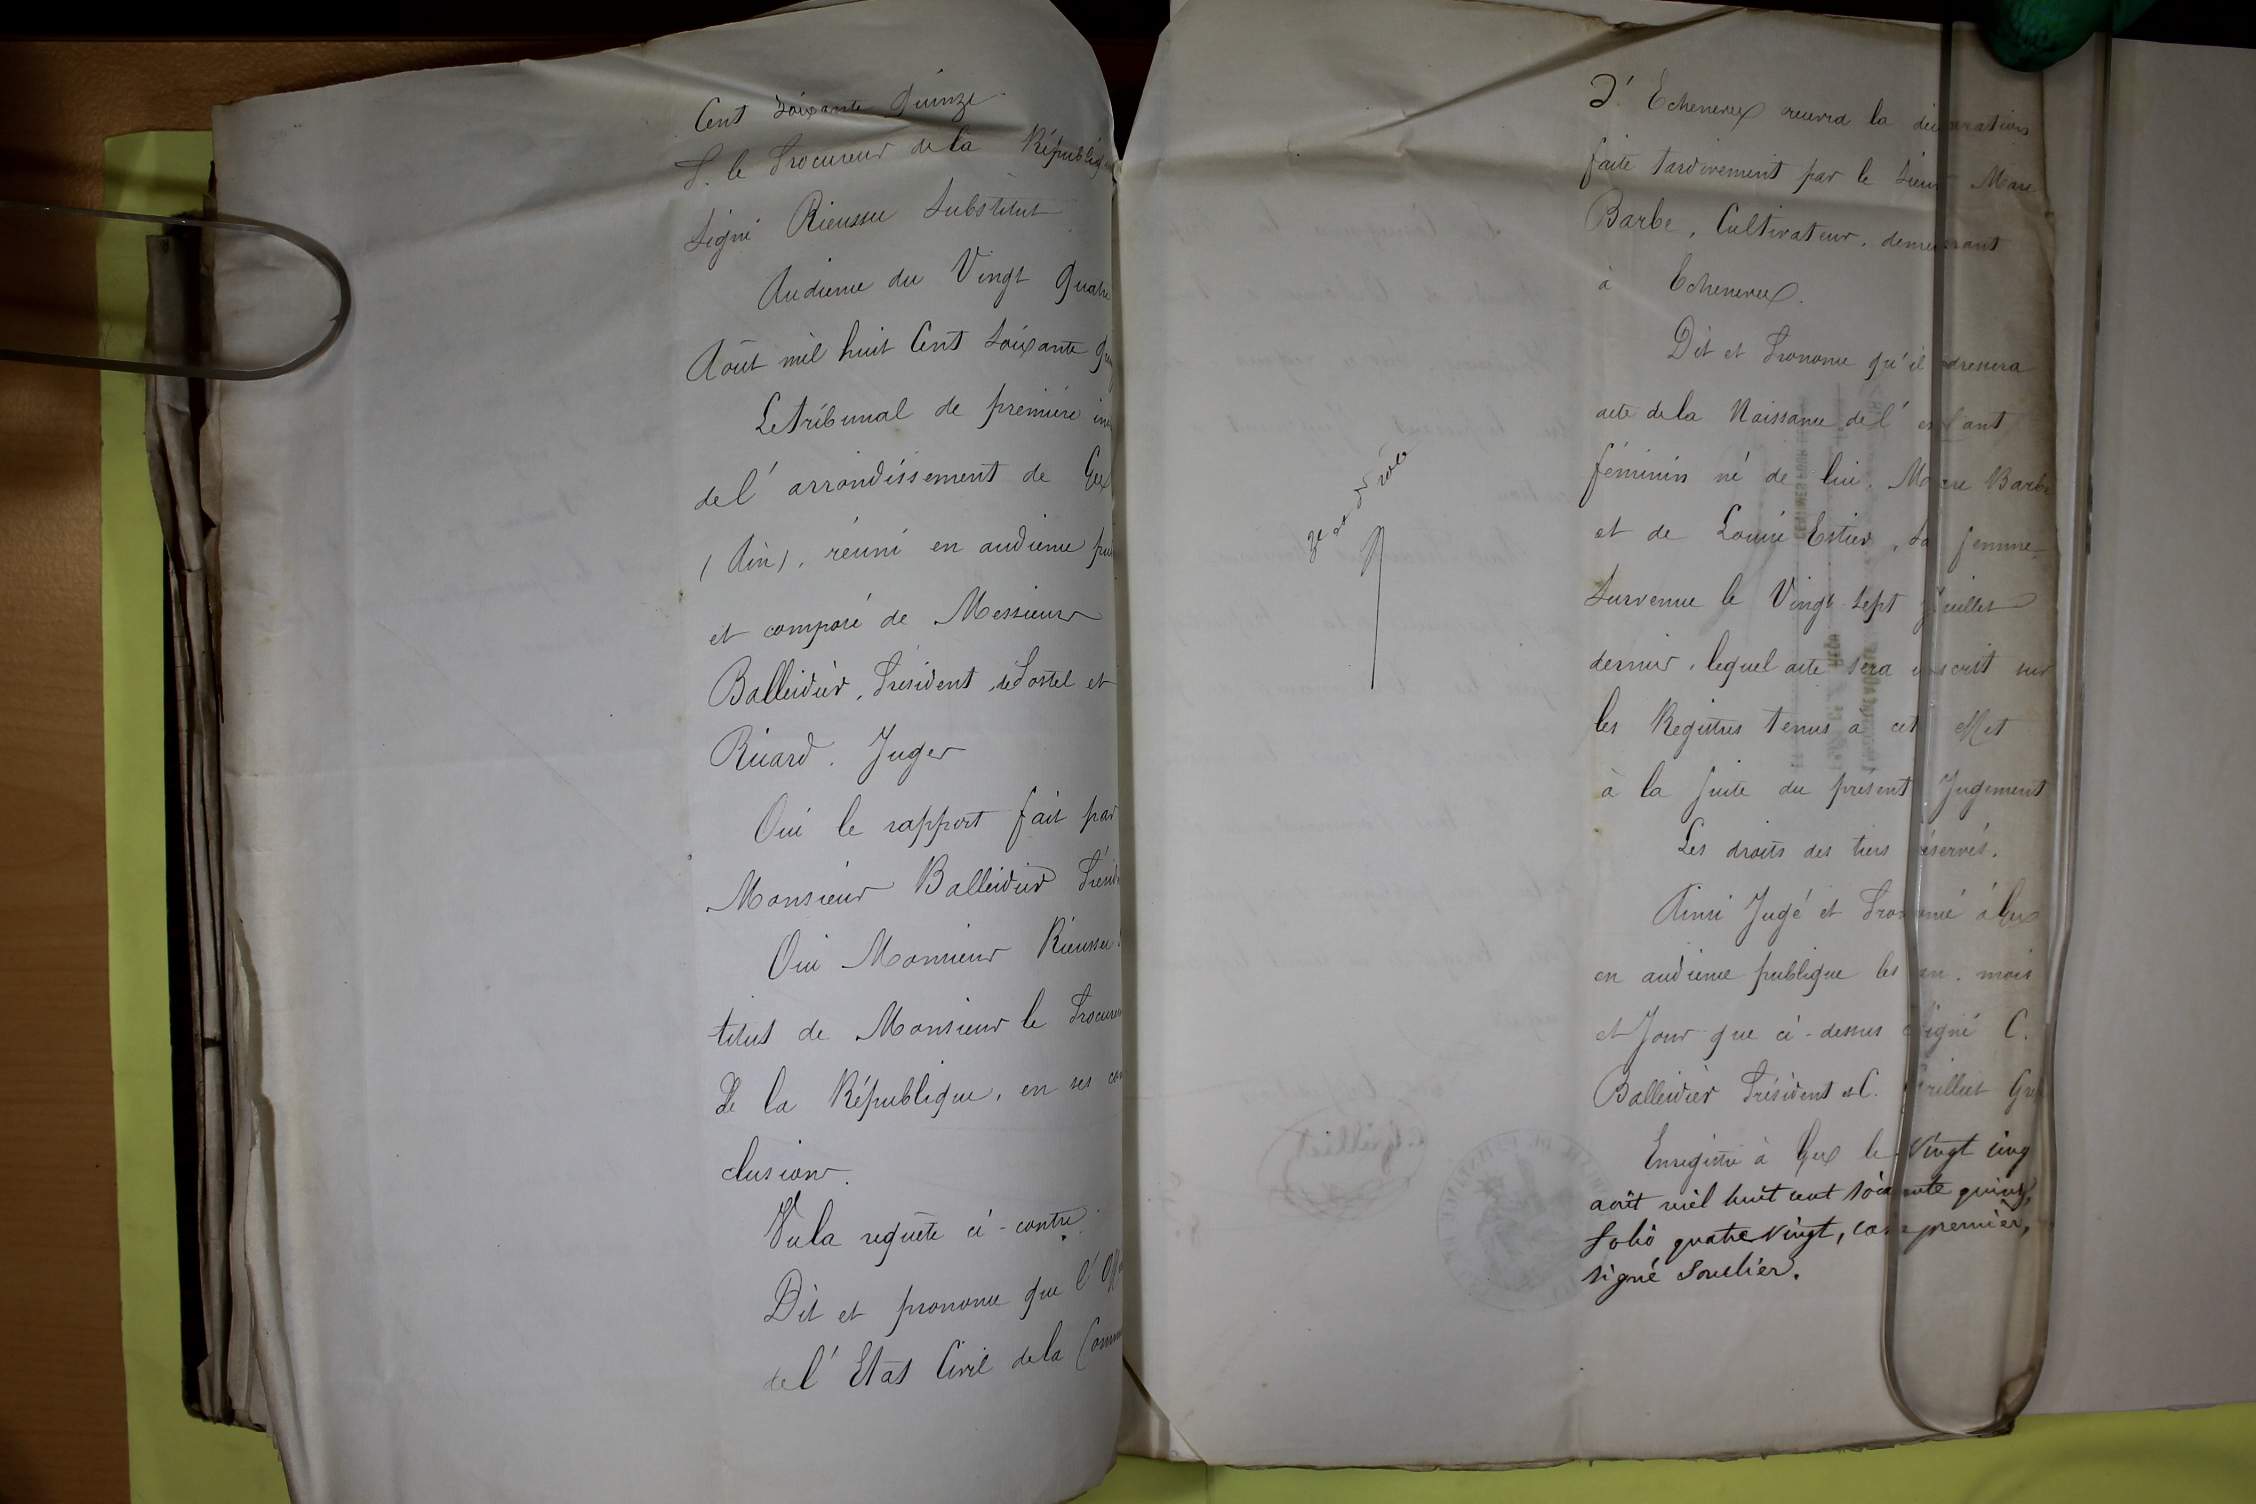 Cent Soixante Quinze
P. le Procureur de la République
Signé Rieussec Substitut
Audience du Vingt Quatre
Août mil huit Cent Soixante Qu
Le tribunal de première ins
de l'arrondissement de Gex
(Ain), réuni en audience pu
et composé de Messieurs
Balleidier, Président, de Postel et
Ricard. Juges
Oui le rapport fait par
Monsieur Balleidier Présid
Oui Monsieur Rieussec
titut de Monsieur le Procureu
de la République, en ses con
clusions.
Vu la requête ci-contre.
Dit et prononce que l'Off
de l'Etat Civil de la Commu
2e et Dr rôle
D'Echenevex recevra la déclaration
faite tardivement par le Sieur Marc
Barbe, Cultivateur, demeurant
à Echenevex.
Dit et Prononce qu'il dressera
acte de la Naissance de l'enfant
féminin né de lui, Marc Barbe
et de Louise Estier, sa femme
Survenue le Vingt Sept Juillet
dernier, lequel acte sera inscrit sur
les Registres tenus à cet effet
à la suite du présent Jugement
Les droits des tiers réservés.
Ainsi Jugé et Prononcé à Gex
en audience publique les an, mois
et Jour que ci-dessus Signé C.
Balleidier Président et C. Grilliet Gref
Enregistré à Gex le Vingt cinq
août mil huit cent soixante quinze,
folio quatre vingt, case premier,
signé Soulier.